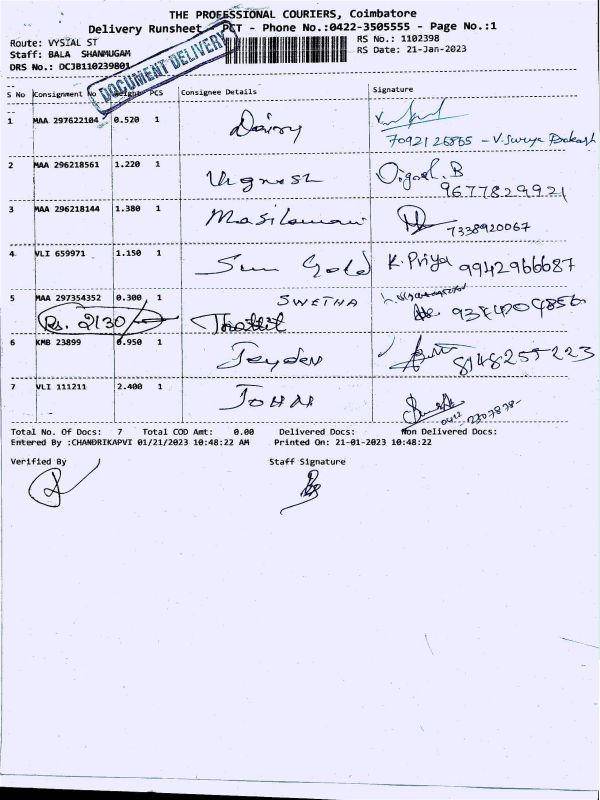 THE PROFESSIONAL COURIERS, Coimbatore
Delivery Runsheet - PCT - Phone No.:0422-3505555 - Page No.:1
Route: VYSIAL ST
RS No.: 1102398
Staff: BALA SHANMUGAM
RS Date: 21-Jan-2023
DRS No.: DCJB110239801
DOCUMENT DELIVERY
S No Consignment No Weight PCS Consignee Details Signature
1 MAA 297622104 0.520 1 Dairy
7092126865 - V. Surya Prakash
2 MAA 296218561 1.220 1 Vignesh
9677829921
3 MAA 296218144 1.380 1 Masilamani
7338920067
4 VLI 659971 1.150 1 Sun Gold K. Priya 9942966687
5 MAA 297354352 0.300 1 SWETHA
Rs. 2130/-
6 KMB 23899 0.950 1 Jeyden
8148255223
7 VLI 111211 2.400 1 JOHN
Total No. Of Docs: 7 Total COD Amt: 0.00 Delivered Docs: Non Delivered Docs:
Entered By :CHANDRIKAPVI 01/21/2023 10:48:22 AM Printed On: 21-01-2023 10:48:22
Verified By Staff Signature